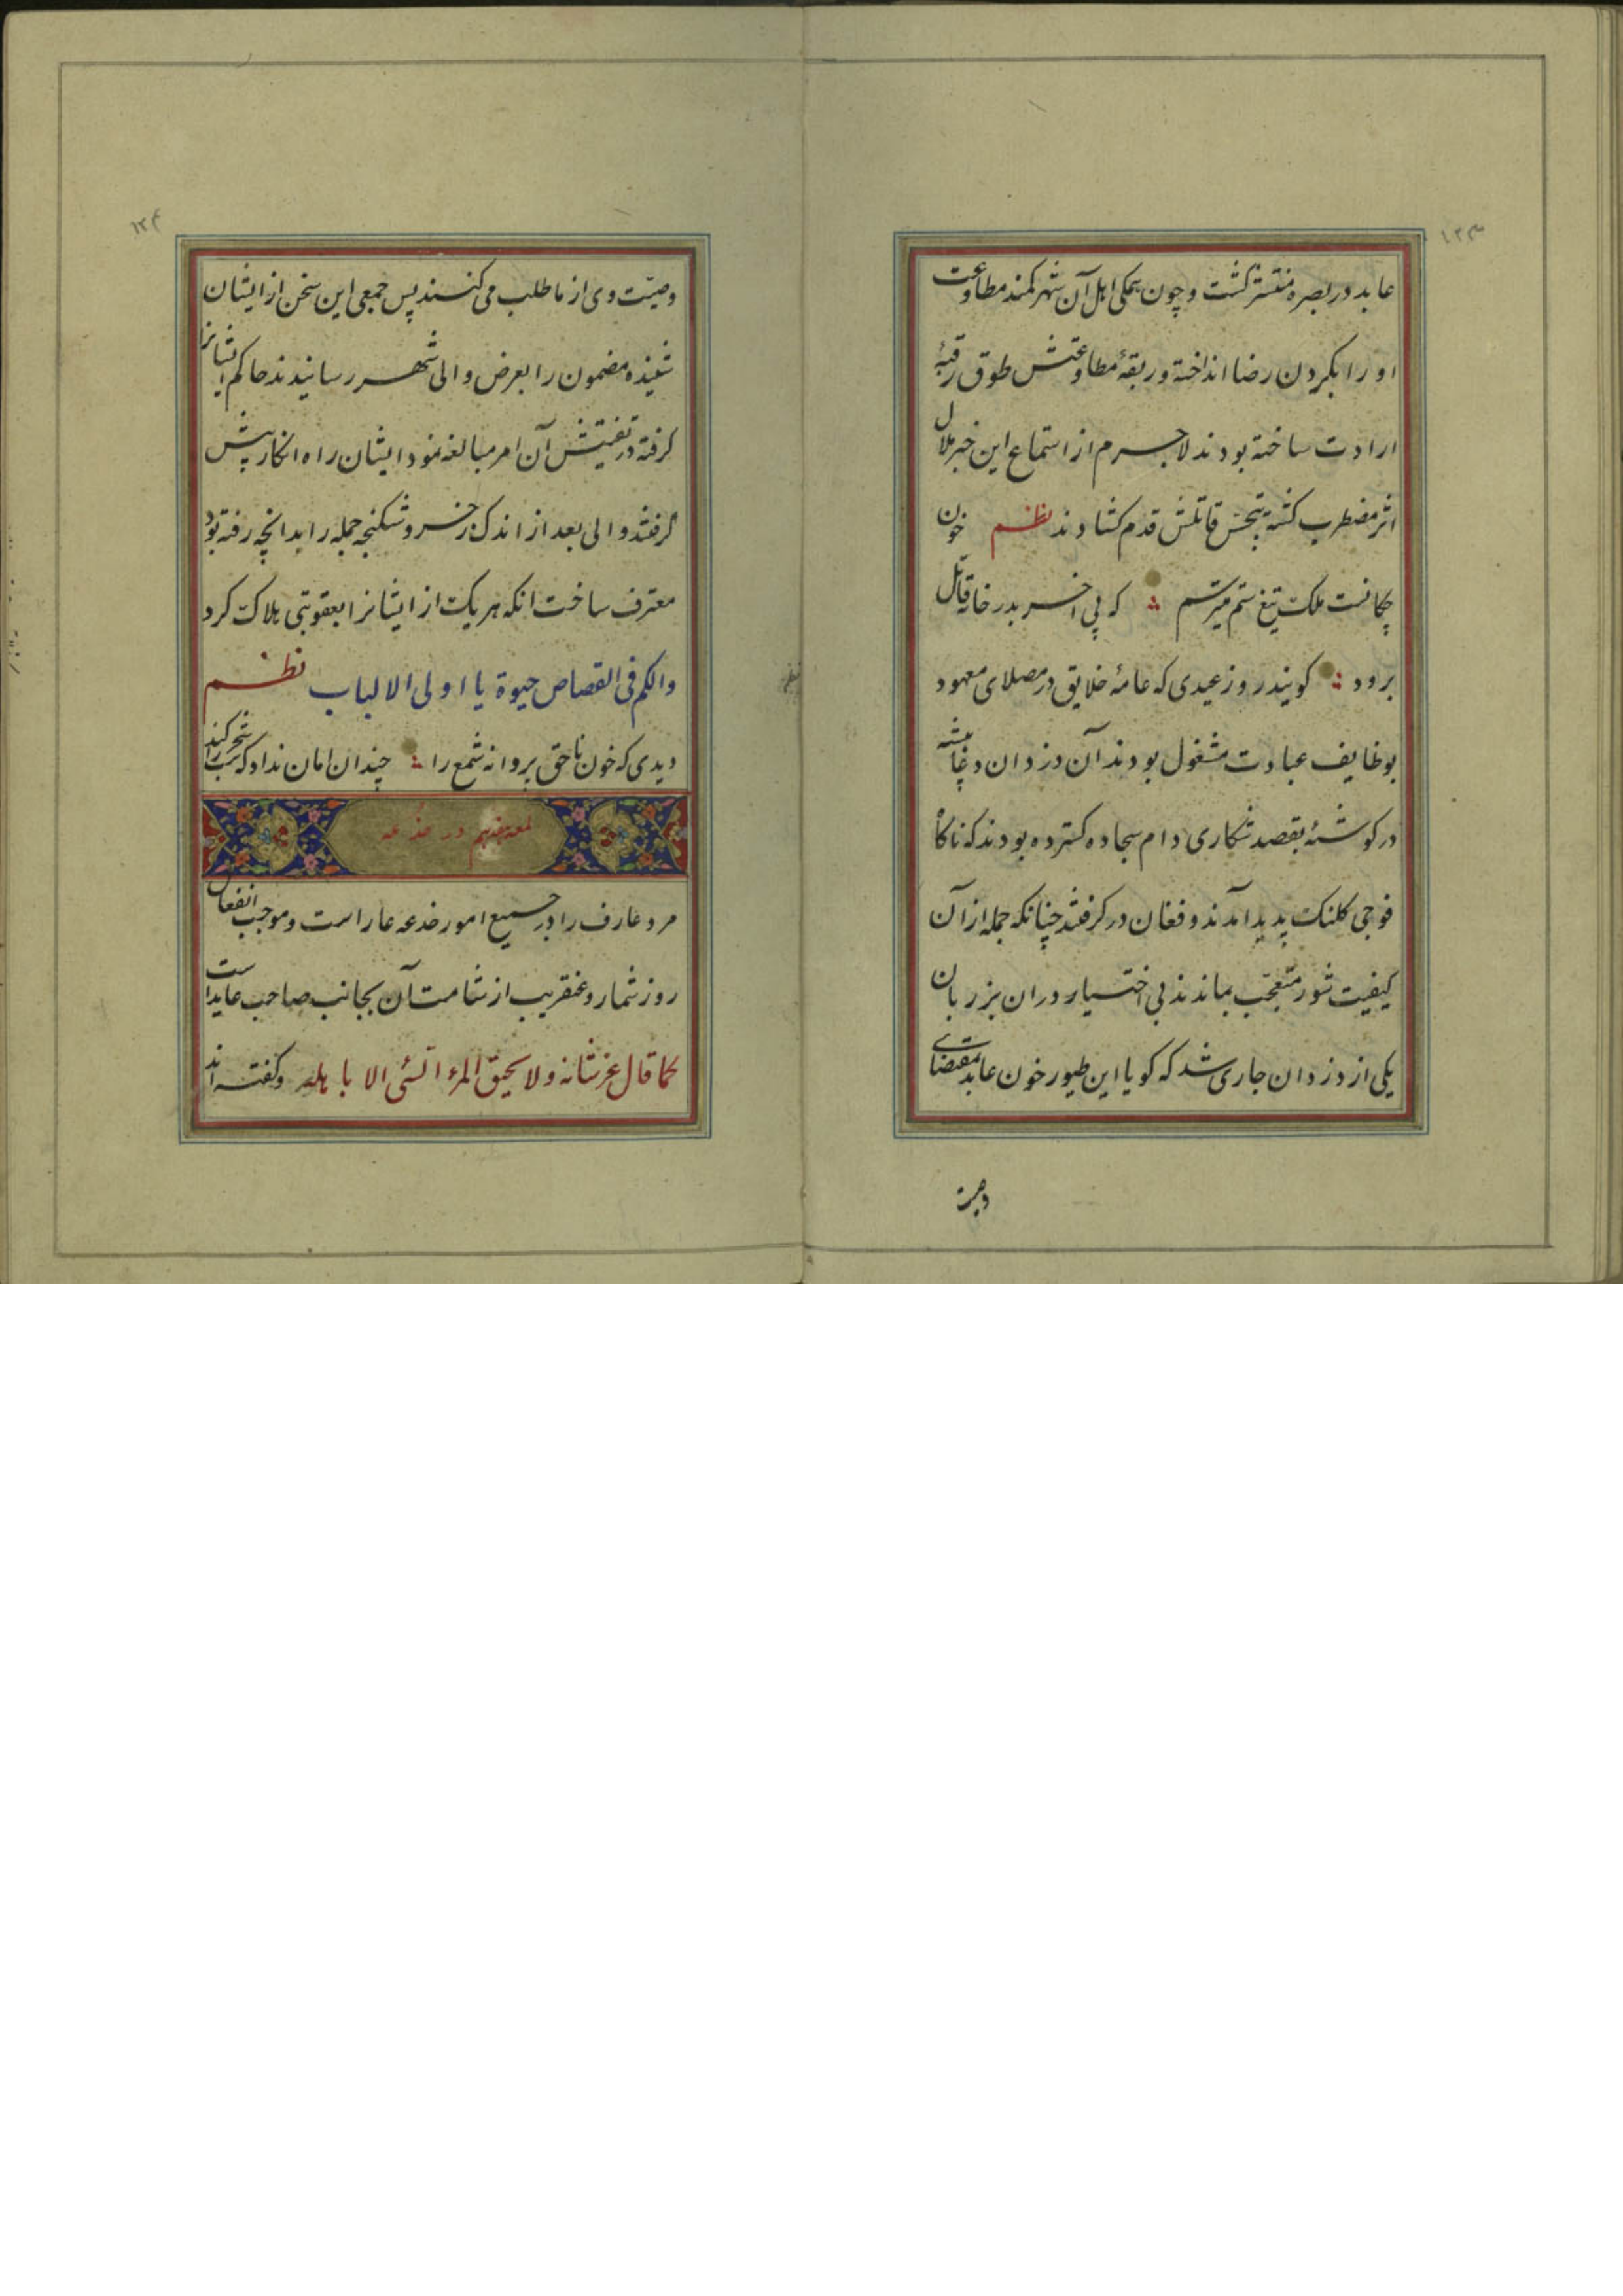 ۱۲۳
عابد در بصره منتشر کشت و چون همکی اهل آن شهر کمند مطاوعت
او را بکردن رضا انداخته و ربقهٔ مطاوعتش طوق رقبهٔ
ارادت ساخته بودند لاجرم از استماع این خبر ملال
اثر مضطرب کشته بتجسس قاتلش قدم کشادند نظم خون
چکانست ملک تیغ ستم میترسم که پی اخر بدر خانه قاتل
برود کویند روز عیدی که عامهٔ خلایق در مصلای معهود
بوظایف عبادت مشغول بودند آن دزدان دغاپیشه
در کوشهٔ بقصد شکاری دام سجاده کسترده بودند که ناکاه
فوجی کلنک پدید آمدند و فغان در کرفتند چنانکه جمله از آن
کیفیت شور متعجب بماندند بی اختیار در ان بر زبان
یکی از دزدان جاری شد که کویا این طیور خون عابد بمقتضای
وصیت
۱۲۴
وصیت وی از ما طلب می کنند پس جمعی این سخن از ایشان
شنیده مضمون را بعرض والی شهر رسانیدند حاکم ایشانرا
کرفته در تفتیش آن امر مبالغه نمود ایشان راه انکار پیش
کرفتند والی بعد از اندک زجر و شکنجه جمله را بدانچه رفته بود
معترف ساخت انکه هر یک از ایشانرا بعقوبتی هلاک کرد
والکم فی القصاص حیوة یا اولی الالباب نظم
دیدی که خون ناحق پروانه شمع را چندان امان نداد که شب را سحر کند
لمعه هفدهم در خدعه
مرد عارف را در جمیع امور خدعه عار است و موجب انفعال
روز شمار و عنقریب از شامت آن بجانب صاحب عاید است
کما قال عز شانه ولا یحیق المکر السئی الا باهله و کفته اند